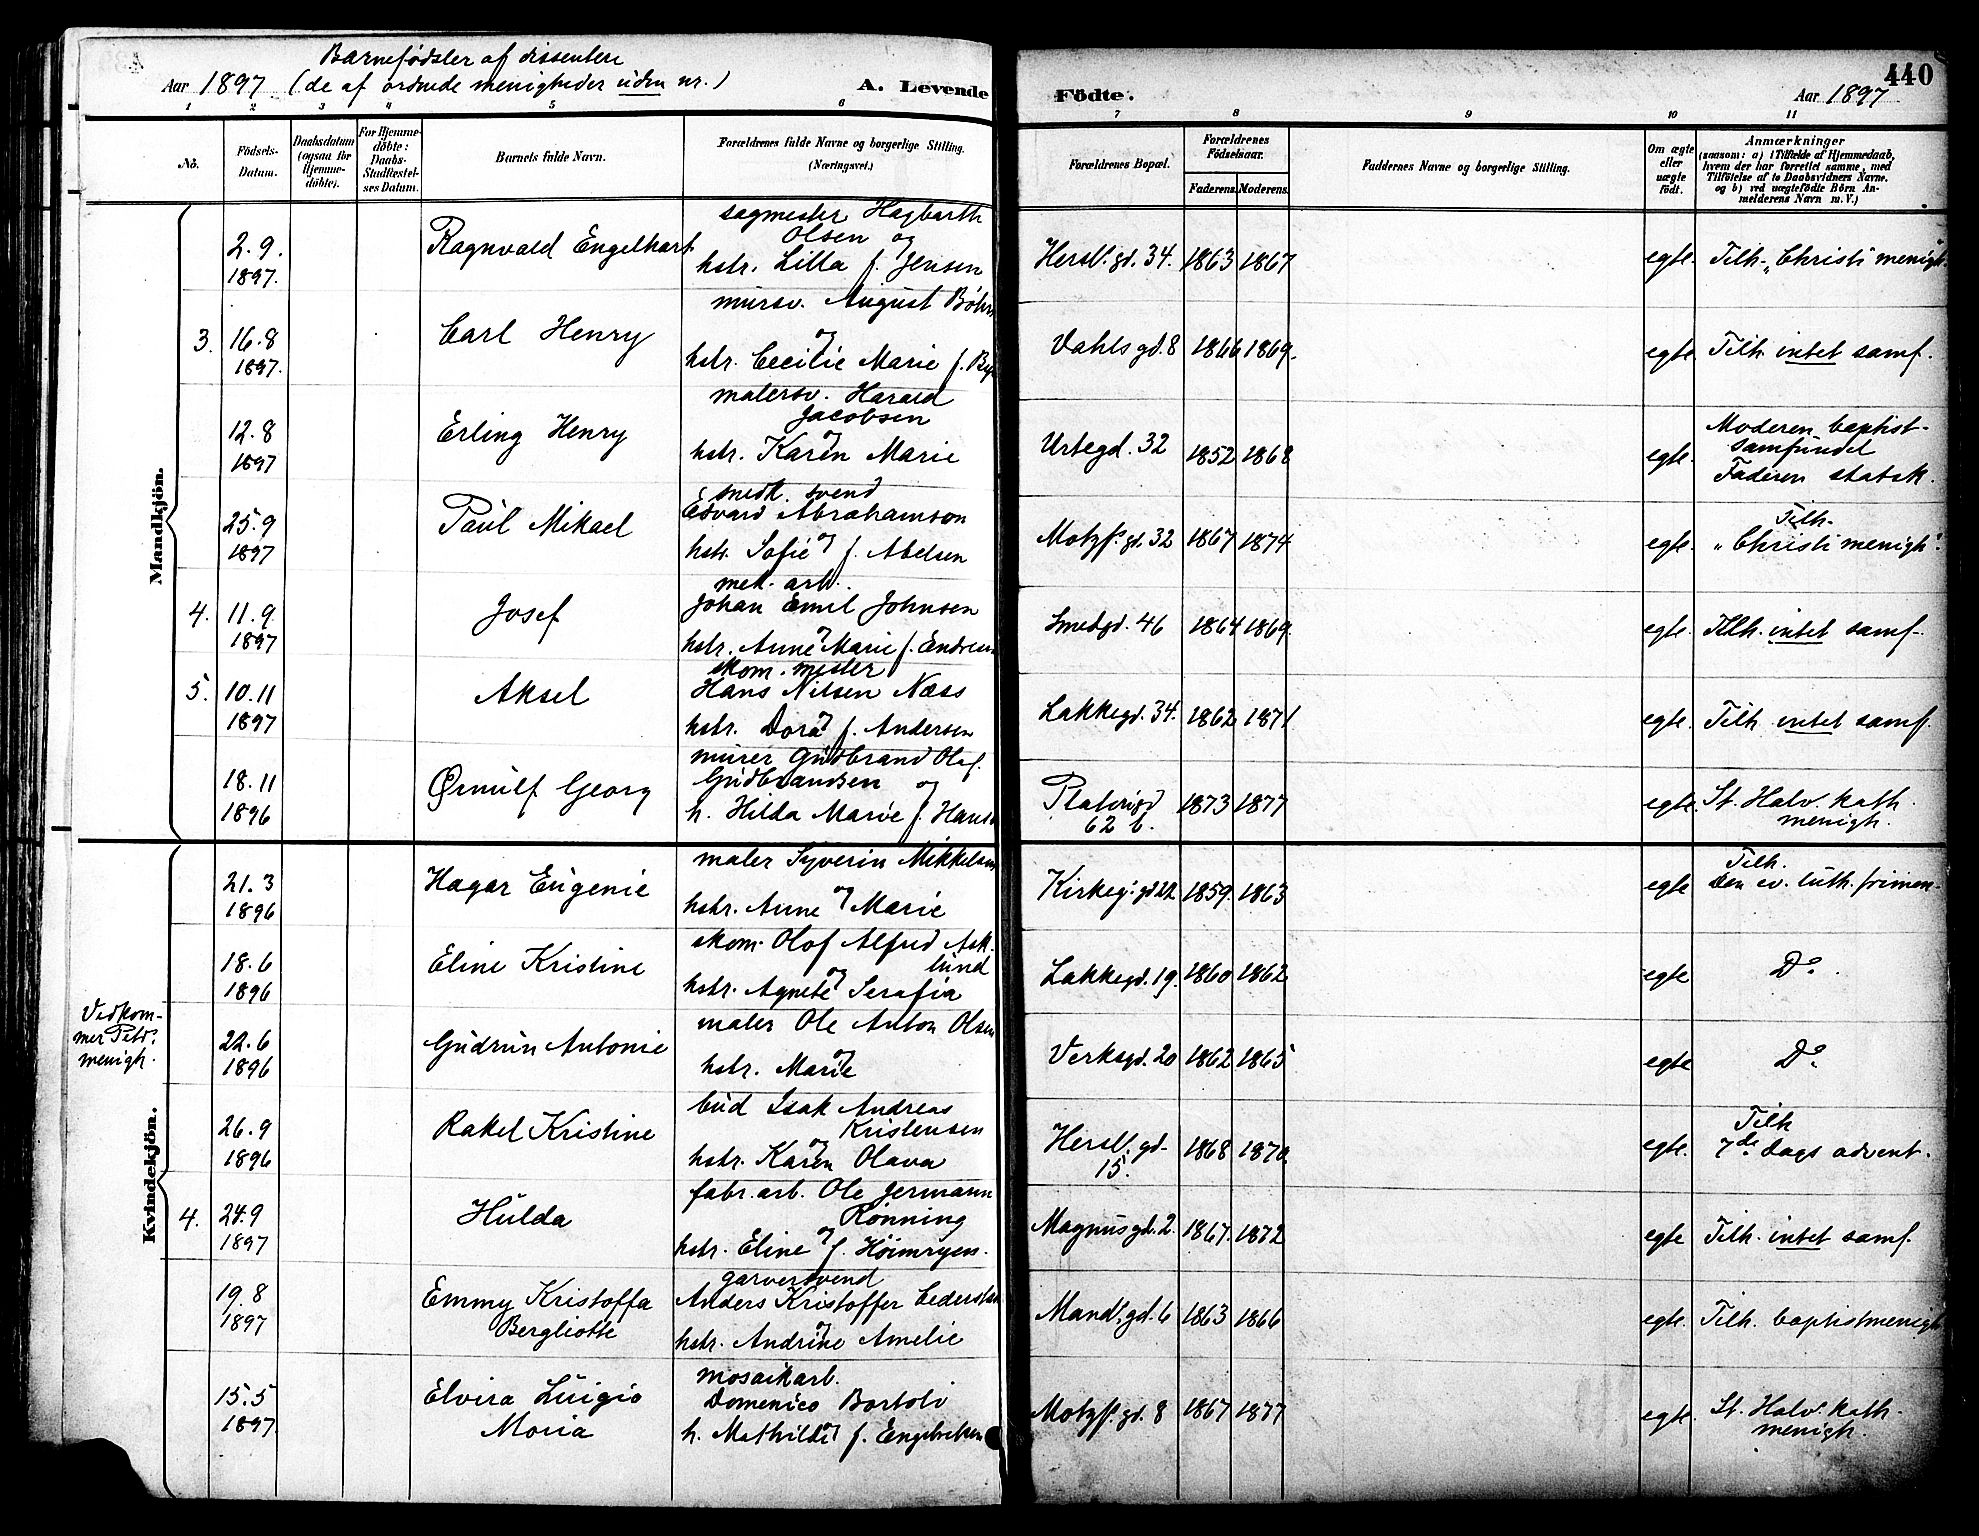 440
Barnefödsler af dissentere
Aar 1897 (de af ordnede menigheder uden nr.)
A. Levende Födte.
Aar 1897
1 2 3 4 5 6 7 8 9 10 11
No.
Födsels-Datum.
Daabsdatum (ogsaa for Hjemmedöbte).
For Hjemmedöbte: Daabs-Stadfæstelses Datum.
Barnets fulde Navn.
Forældrenes fulde Navne og borgerlige Stilling. (Næringsvei.)
Forældrenes Bopæl.
Forældrenes Födselsaar.
Faderens. Moderens.
Faddernes Navne og borgerlige Stilling.
Om ægte eller uægte födt.
Anmærkninger
(saasom: a) i Tilfælde af Hjemmedaab, hvem der har forrettet samme, med Tilföielse af to Daabsvidners Navne. og b) ved uægtefödte Börn Anmelderens Navn m. V.)
Mandkjön.
2.9. 1897. Ragnvald Engelhart
sagmester Hagbarth
Olsen og
hstr. Lilla f. Jensen
Hersl. gd. 34. 1863 1867 egte. Tilh. „Christi menigh.
3. 16.8 1897. Carl Henry
mursv. August
og
hstr. Cecilie Marie f.
Vahls gd. 8 1866 1869. egte Tilh. intet samf.
12.8 1897 Erling Henry
malersv. Harald
Jacobsen
og
hstr. Karen Marie
Urtegd. 32 1852 1868 egte. Moderen baptist-
samfundet
Faderen statsk.
25.9 1897 Paul Mikael
snedk. svend
Edvard Abrahamson
og
hstr. Sofie f. Abelsen
Motzf. gd. 32 1867 1874 egte. Tilh.
„Christi menigh".
4. 11.9. 1897 Josef
mek. arb.
Johan Emil Johnsen
og
hstr. Anne Marie f.
Smedgd. 46 1864 1869. egte. Tilh. intet samf.
5. 10.11 1897 Aksel
skom. mester
Hans Nilsen Næss
og
hstr. Dora f. Andersen
Lakkegd. 34. 1862 1871 egte. Tilh. intet samf.
18.11 1896 Ørnulf Georg
murer Gudbrand Olaf
Gudbrandsen og
h. Hilda Marie f.
62 b. 1873 1877 egte. St. Halv. kath.
menigh.
Kvindekjön.
21.3 1896 Hagar Eugenie
maler Syverin Mikkelsen
og
hstr. Anne Marie
Kirkeg. gd 22 1859. 1863 egte Tilh.
den ev. luth. frimen-
18.6 1896 Eline Kristine
skom. Olof Alfred Ask-
lund
og
hstr. Agnete Serafia
Lakkegd. 19. 1860 1862 egte Do.
Vedkom-
mer Petri
menigh.
22.6 1896 Gudrun Antonie
maler Ole Anton Olsen
og
hstr. Marie
Verksgd. 20 1862 1865 egte Do.
26.9 1896 Rakel Kristine
bud Isak Andreas
Kristensen
og
hstr. Karen Olava
Hersl. gd.
15. 1868 1870. egte. Tilh
7de dags advent.
4. 24.9 1897 Hulda
fabr. arb. Ole Jermann
Rönning
og
hstr. Eline f.
Magnusgd. 2. 1867. 1872 egte Tilh. intet samf.
19.8 1897 Emmy Kristoffa
Bergliotte
garversvend
Anders Kristoffer
og
hstr. Andrine Amelie
Mand. gd. 6 1863 1866 egte. Tilh. baptistmenigh
15.5 1897. Elvira Luigia
Maria
mosaikarb.
Domenico Bortoli
og
h. Mathilde f. Engebretsen
Motzf. gd. 8 1867 1877 egte. St. Halv. kath.
menigh.